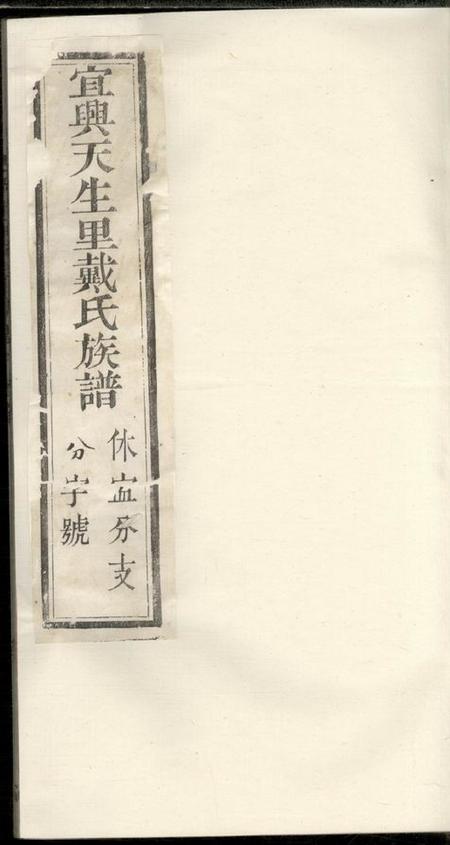 宜興天生里戴氏族譜
休宜分支
分字號